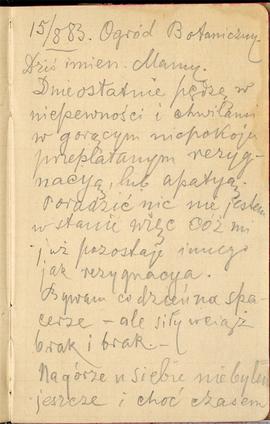 15/8 83. Ogród Botaniczny.
Dziś imien. Mamy.
Dnie ostatnie pędzę w
niepewności i chwilami
w gorącym niepokoju
przeplatanym rezyg-
nacyą, lub apatyą.
Poradzić nic nie jestem
w stanie więc cóż mi
już pozostaje innego
jak rezygnacya.
Bywam codzień na spa-
cerze – ale siły wciąż
brak i brak. –
Na górze u siebie nie byłem
jeszcze i choć czasem